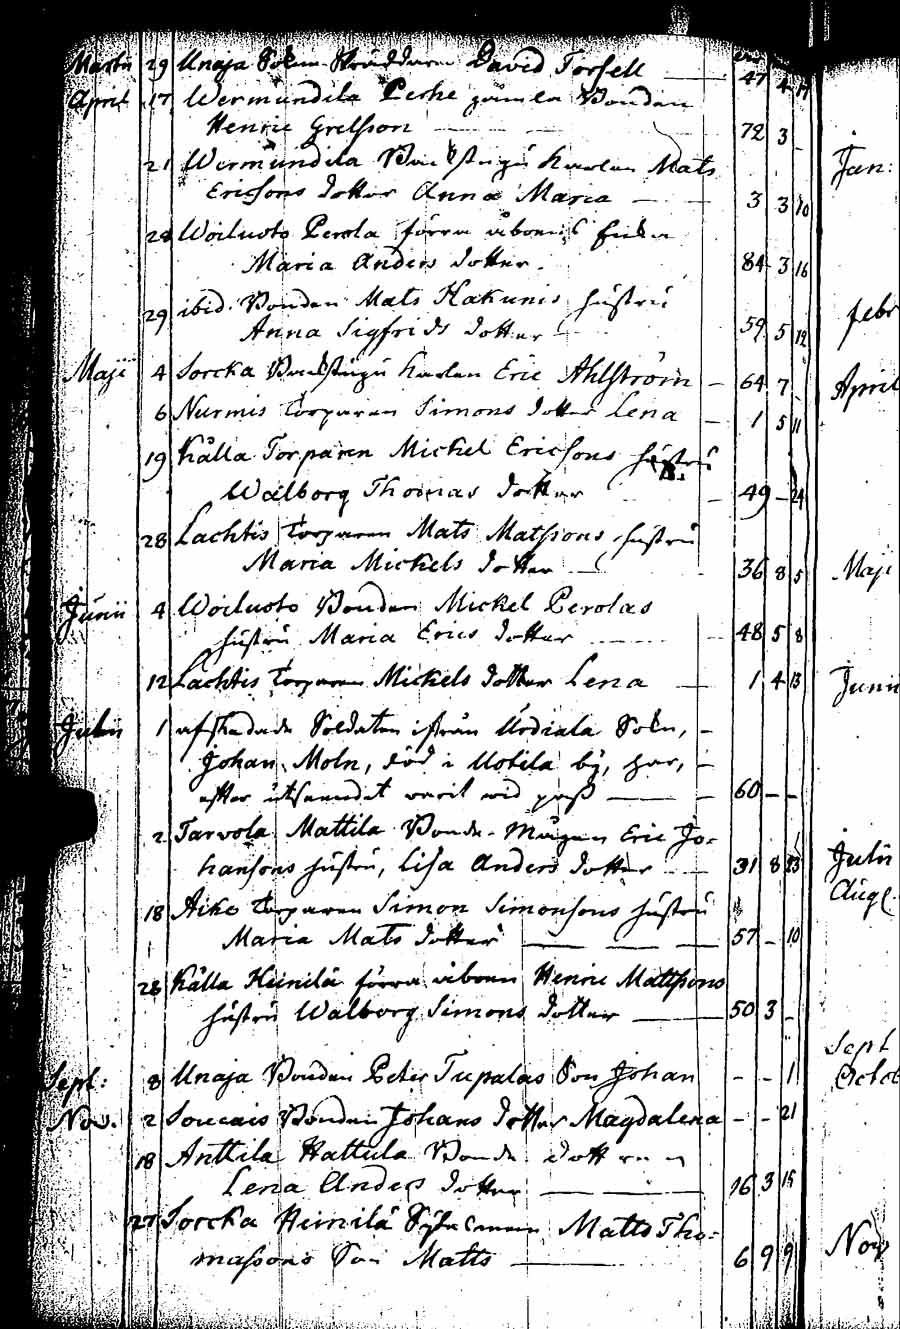 Martii 29 Unaja Sokne Skräddaren David Torsell — 47 4 17
April 17 Wermundila Perhe gamla Bonden
Henric Grelsson — 72 3 -
21 Wermundila Mats
Ericsons dotter Anna Maria — 3 3 10
Jan:
28 Woiluoto Perola förra åboens Enka
Maria Anders dotter. 84 3 16
29 ibid. Bonden Mats Hakunis hustru
Anna Sigfrids dotter — 59 5 12
febr
Maji 4 Sorcka karlen Eric Ahlström — 64 7
April
6 Nurmis Torparen Simons dotter Lena — 1 5 11
19 Källa Torparen Mickel Ericsons hustru
Walborg Thomas dotter — 49 - 24
28 Lachtis Torparen Mats Matssons hustru
Maria Mickels dotter — 36 8 5
Maji
Junii 4 Woiluoto Bonden Mickel Perolas
hustru Maria Erics dotter — 48 5 8
12 Lachtis Torparen Mickels dotter Lena — 1 4 13
Junii
Julii 1 afskedade Soldaten ifrån Urdiala Sokn, -
Johan Moln, död i Uotila by, -
efter warit wid — 60 - -
2 Tarvola Mattila Bonde-Mågen Eric Jo-
hansons hustru, Lisa Anders dotter — 31 8 23
Julii
Aug.
18 Aiko Torparen Simon Simonsons hustru
Maria Mats dotter — 57 - 10
28 Källa Heinilä förra åboen Henric Mattssons
hustru Walborg Simons dotter — 50 3 -
Sept
Sept: 8 Unaja Bonden Peter Tupalas Son Johan - - 1
Octob
Nov. 2 Soucais Bonden Johans dotter Magdalena - - 21
18 Anttila Hattula Bonde dotteren
Lena Anders dotter — 16 3 15
27 Sorcka Heinilä Matts Tho-
massons Son Matts — 6 9 9
Nov